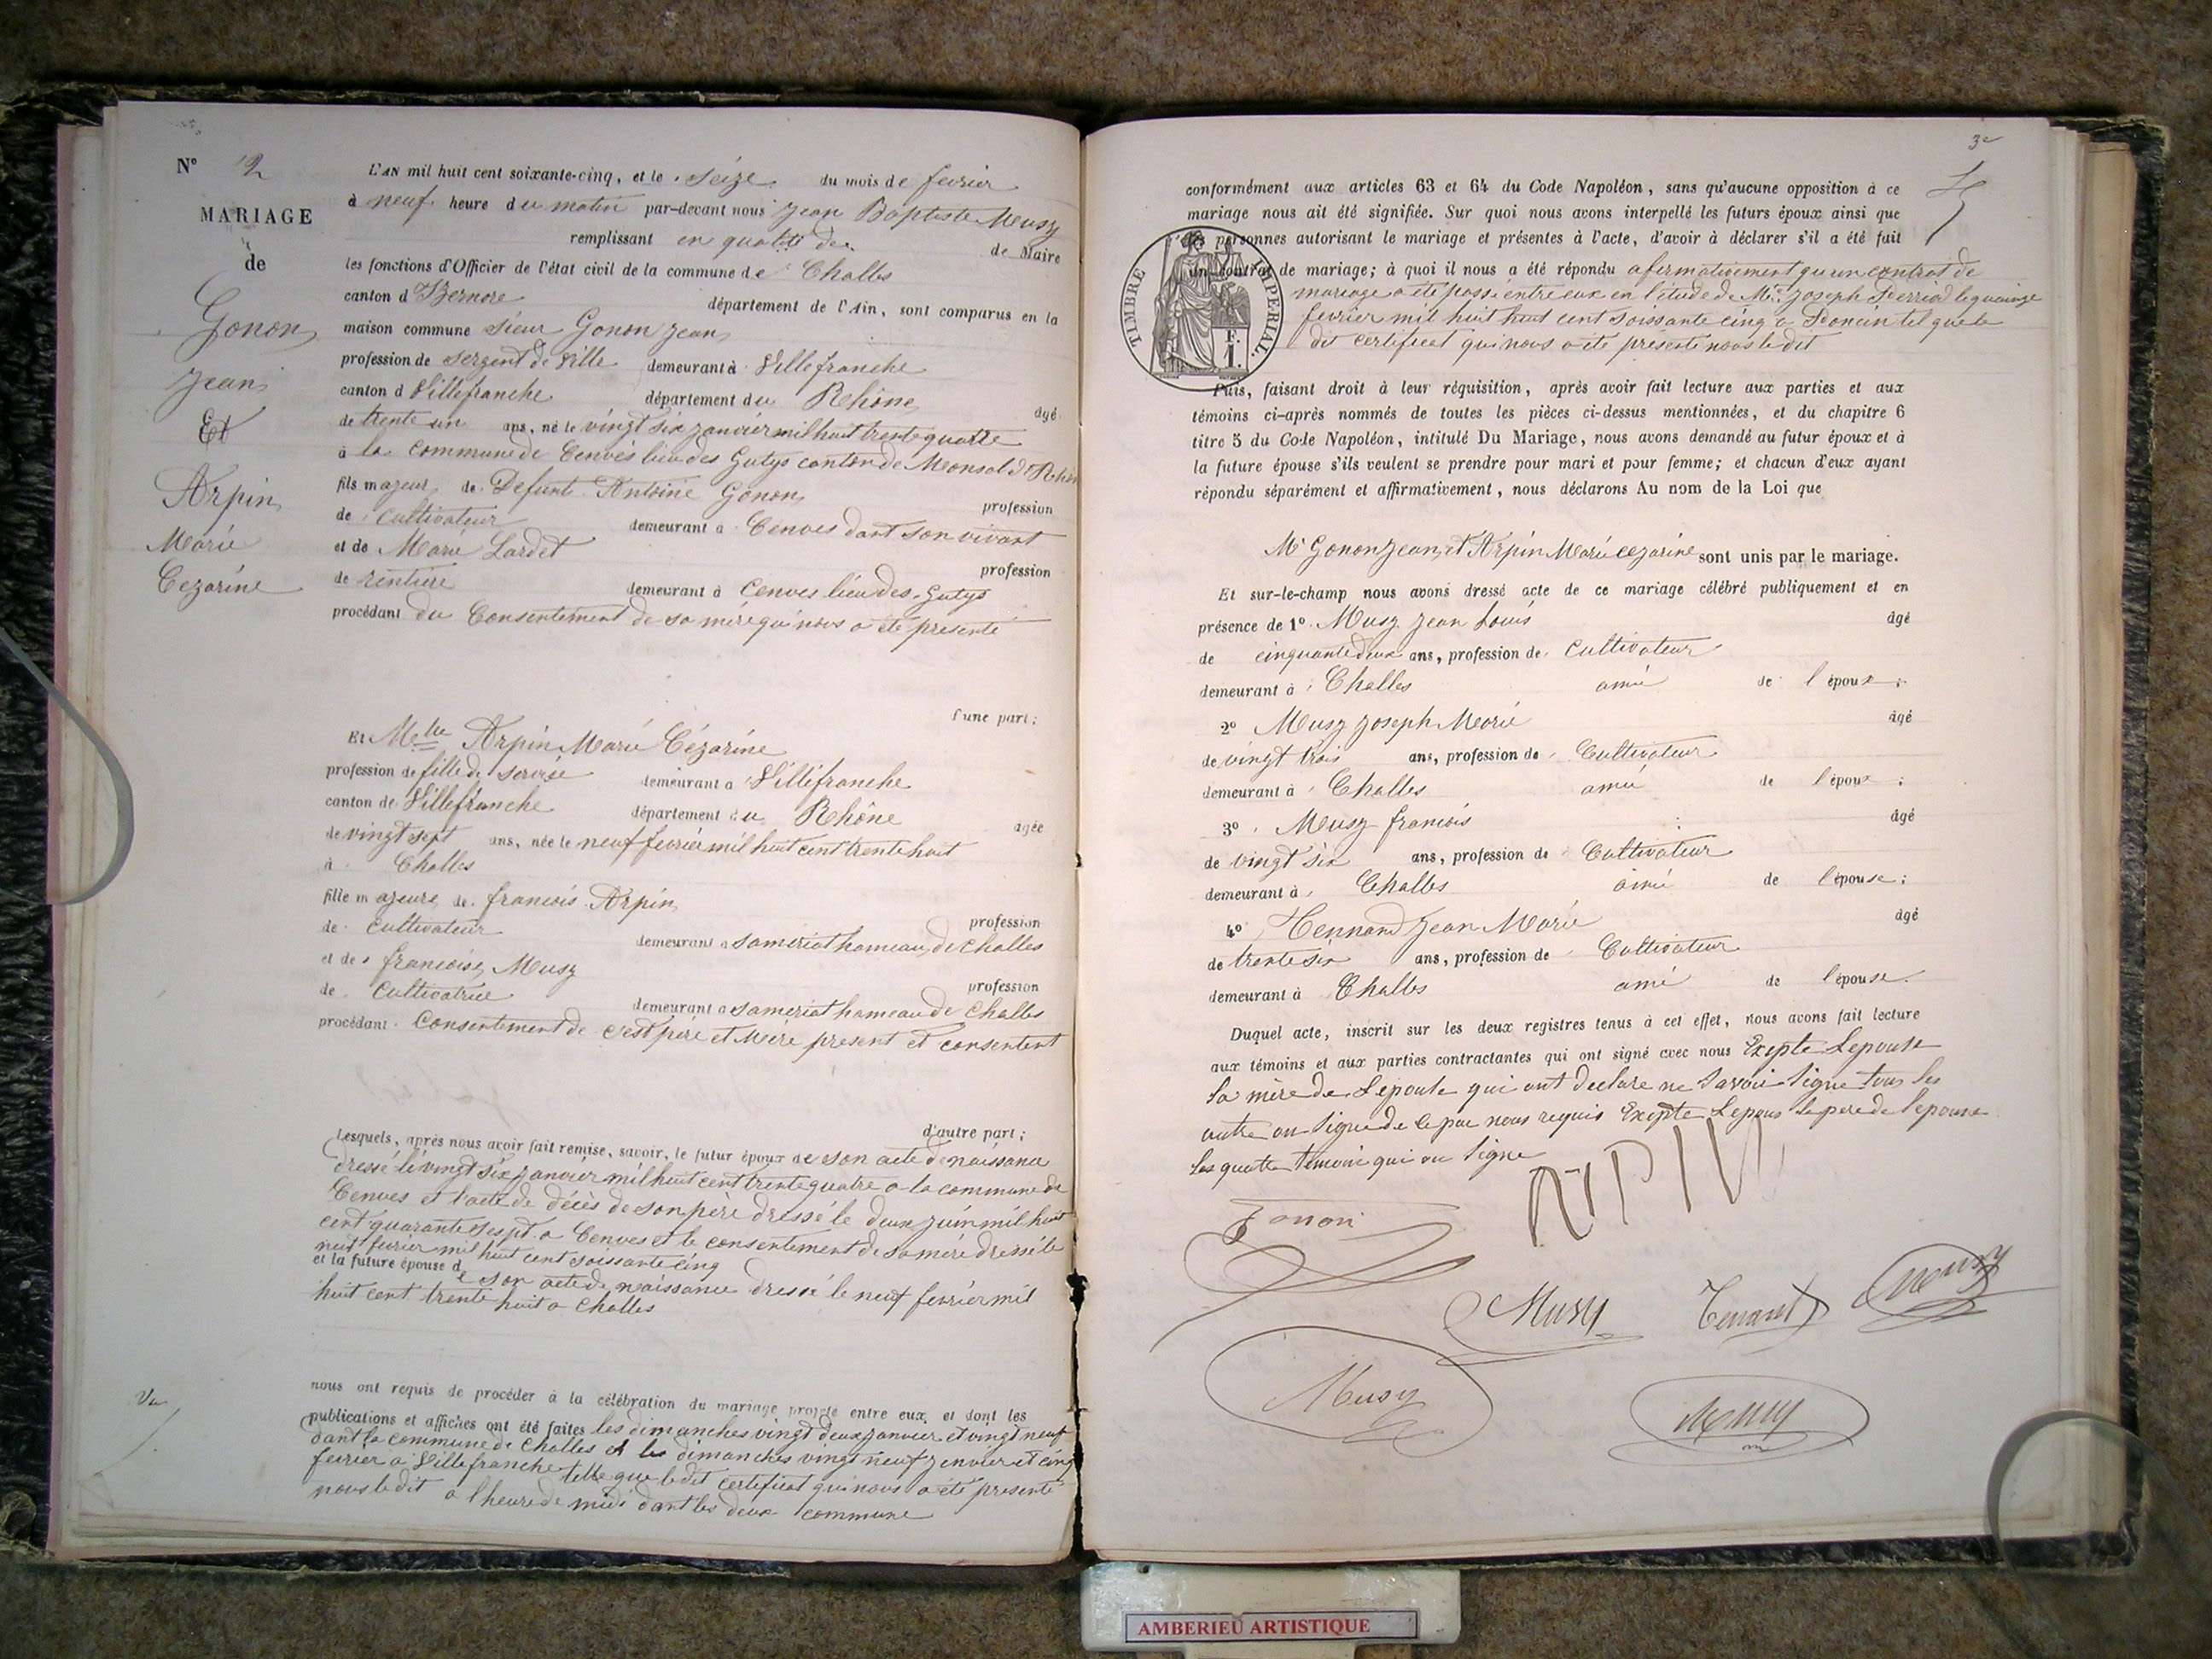 N° 2
MARIAGE
de
Gonon
Jean
Et
Arpin
Marie
Cezarine
Vu
L'AN mil huit cent soixante-cinq, et le seize du mois de fevrier
à neuf heure du matin par-devant nous Jean Baptiste Musy
remplissant en qualité de de Maire
les fonctions d'Officier de l'état civil de la commune de Challes
canton d Izernore département de l'Ain, sont comparus en la
maison commune sieur Gonon Jean
profession de sergent de ville demeurant à Villefranche
canton d Villefranche département du Rhône âgé
de trente un ans, né le vingt six janvier mil huit trente quatre
à la commune de Cenves lieu des Gutys canton de Monsol dt Rhône
fils majeur de Defunt Antoine Gonon profession
de cultivateur demeurant à Cenves dant son vivant
et de Marie Lardet profession
de rentiere demeurant à Cenves lieu des Gutys
procédant du Consentement de sa mère qui nous a été presenté
d'une part;
Et Melle Arpin Marie Cézarine
profession de fille de servise demeurant à Villefranche
canton de Villefranche département du Rhône âgée
de vingt sept ans, née le neuf fevrier mil huit cent trente huit
à Challes
fille majeure de francois Arpin profession
de cultivateur demeurant à Sameriat hameau de Challes
et de francoise Musy profession
de Cultivatrice demeurant à Sameriat hameau de Challes
procédant Consentement de c'est père et Mère present et consentent
d'autre part;
Lesquels, après nous avoir fait remise, savoir, le futur époux de son acte de naissance
dressé le vingt six janvier mil huit cent trente quatre a la commune de
Cenves et l'acte de décès de son père dressé le deux juin mil huit
cent quarante sept a Cenves et le consentement de sa mère dressé le
neuf fevrier mil huit cent soissante cinq
et la future épouse de son acte de naissance dressé le neuf fevrier mil
huit cent trente huit a Challes
nous ont requis de procéder à la célébration du mariage projeté entre eux, et dont les
publications et affiches ont été faites les dimanches vingt deux janvier et vingt neuf
dant la commune de Challes et les dimanches vingt neuf jenvier et cinq
fevrier a Villefranche telle que le dit certificat qui nous a été presenté
nous le dit a l'heure de midi dant les deux commune
3e
conformément aux articles 63 et 64 du Code Napoléon, sans qu'aucune opposition à ce
mariage nous ait été signifiée. Sur quoi nous avons interpellé les futurs époux ainsi que
les personnes autorisant le mariage et présentes à l'acte, d'avoir à déclarer s'il a été fait
un contrat de mariage; à quoi il nous a été répondu afermativement qu'un contrat de
mariage a été passé entre eux en l'étude de Mtre Joseph Perriod le quinze
fevrier mil huit huit cent soissante cinq a Poncin tel que le
dit certificat qui nous a été presenté nous le dit
TIMBRE IMPERIAL.
F. 1.
Puis, faisant droit à leur réquisition, après avoir fait lecture aux parties et aux
témoins ci-après nommés de toutes les pièces ci-dessus mentionnées, et du chapitre 6
titre 5 du Code Napoléon, intitulé Du Mariage, nous avons demandé au futur époux et à
la future épouse s'ils veulent se prendre pour mari et pour femme; et chacun d'eux ayant
répondu séparément et affirmativement, nous déclarons Au nom de la Loi que
Mr Gonon Jean, et Arpin Marie cezarine sont unis par le mariage.
Et sur-le-champ nous avons dressé acte de ce mariage célébré publiquement et en
présence de 1° Musy Jean Louis âgé
de cinquante deux ans, profession de Cultivateur
demeurant à Challes amie de l époux;
2° Musy Joseph Marie âgé
de vingt trois ans, profession de Cultivateur
demeurant à Challes amie de l'époux;
3° Musy francois âgé
de vingt six ans, profession de Cultivateur
demeurant à Challes amie de l'épouse;
4° Tennand Jean Marie âgé
de trente six ans, profession de Cultivateur
demeurant à Challes amie de l'épouse.
Duquel acte, inscrit sur les deux registres tenus à cet effet, nous avons fait lecture
aux témoins et aux parties contractantes qui ont signé avec nous Exepte Lepouse
la mère de Lépouse qui ont declare ne Savoir Signe tous les
autre on Signe de ce par nous requis Exepte Lepoux le pere de l'epouse
les quatre temoin qui on Signe
ARPIN
Gonon
Musy
Tenand
Musy
Musy
Musy
AMBERIEU ARTISTIQUE